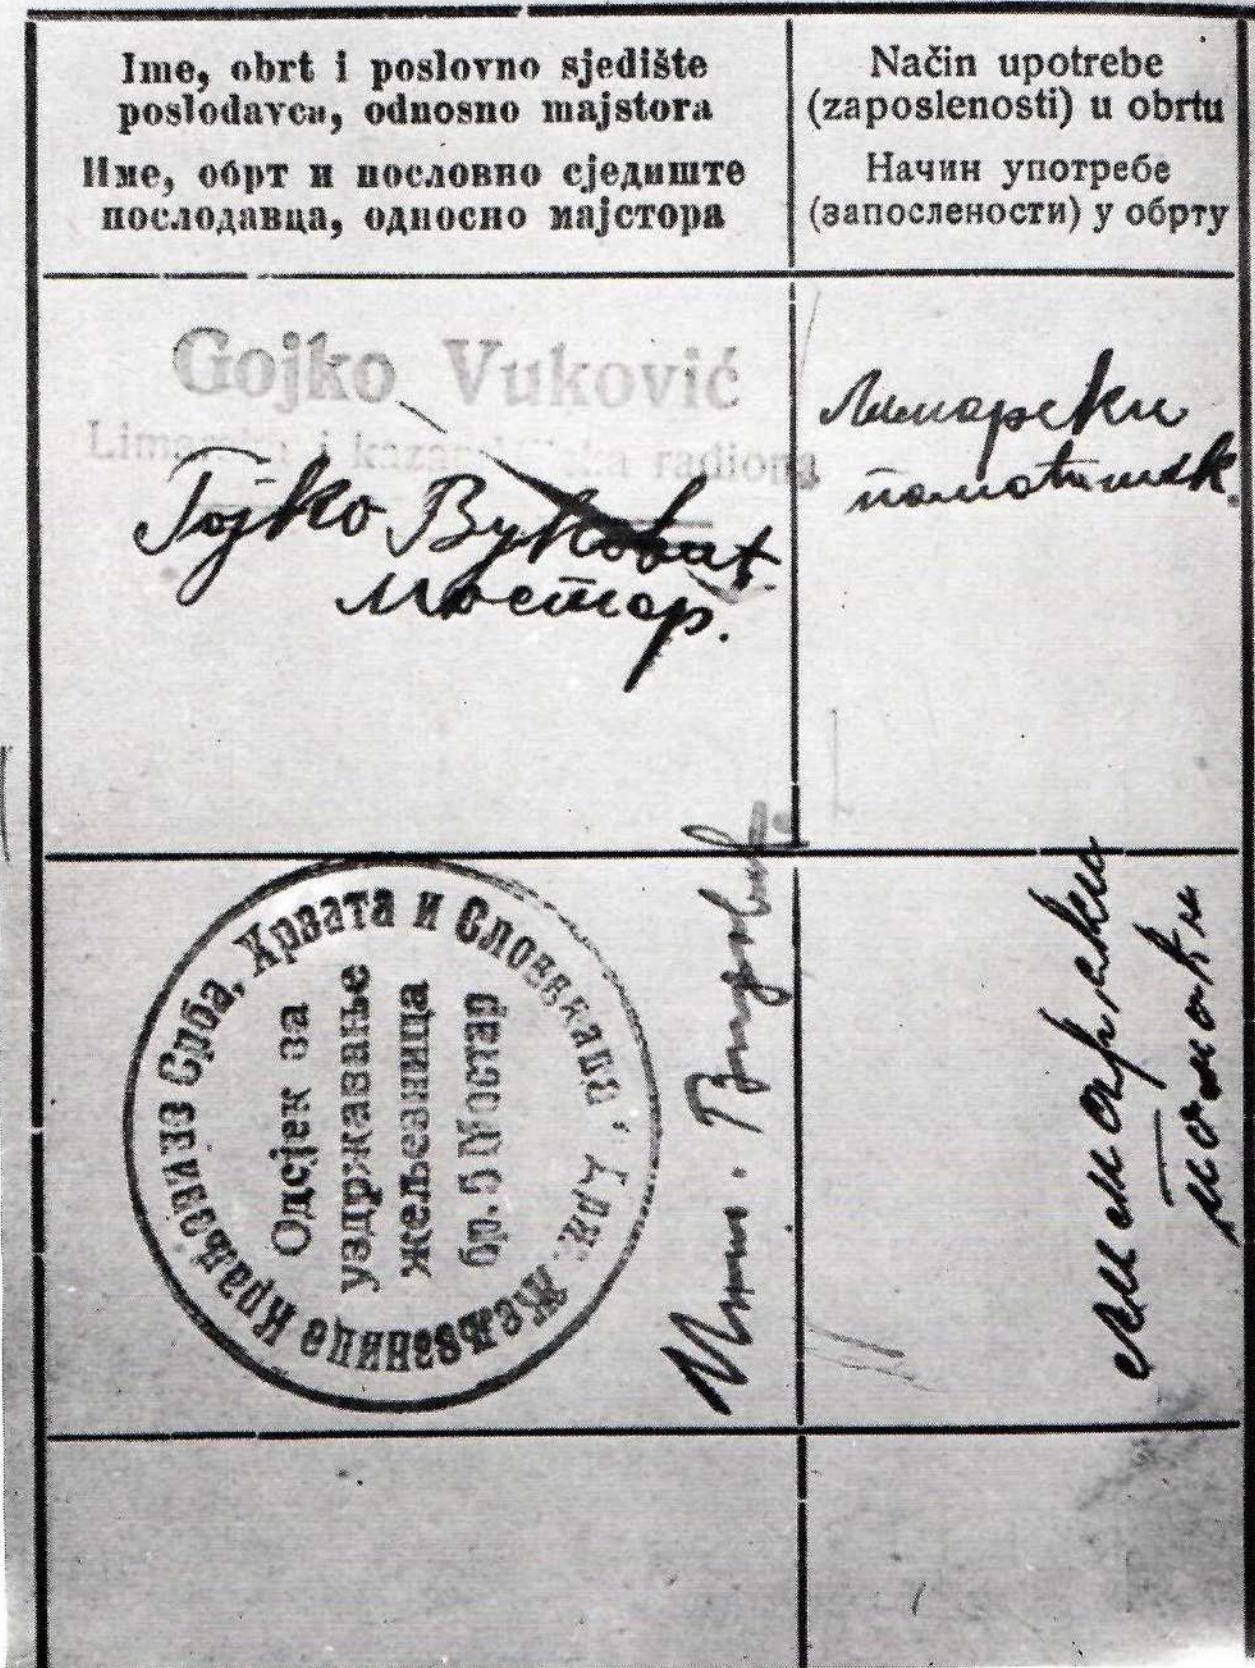 Ime, obrt i poslovno sjedište
poslodavca, odnosno majstora
Име, обрт и пословно сједиште
послодавца, односно мајстора
Način upotrebe
(zaposlenosti) u obrtu
Начин употребе
(запослености) у обрту
Gojko Vuković
i radiona
Гојко Вуковић
Мостар.
Лимарски
помоћник.
Жељезнице Краљевине Срба, Хрвата и Словенаца
Одсјек за
уздржавање
жељезница
бр. 5 Мостар
лимарски